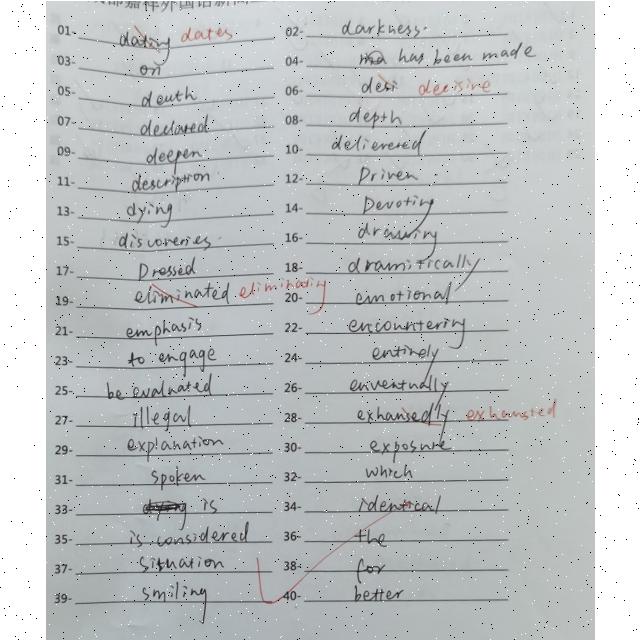 01- dating dates 02- darkness.
03- on 04- ma has been made
05- death 06- desi decisive
07- declared 08- depth
09- deepen 10- delievered
11- description 12- Driven
13- dying 14- Devoting
15- discoveries. 16- drawing
17- Dressed 18- dramitically
19- eliminated eliminating 20- emotional
21- emphasis 22- encountering
23- to engage 24- entirely
25- be evaluated 26- enventually
27- illegal 28- exhausedly exhausted
29- explanation 30- exposure
31- spoken 32- which
33- is 34- identical
35- is considered 36- the
37- situation 38- for
39- smiling 40- better